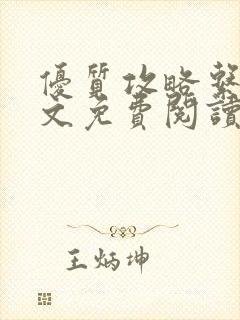 優質攻略系
文免費閱讀
王炳坤